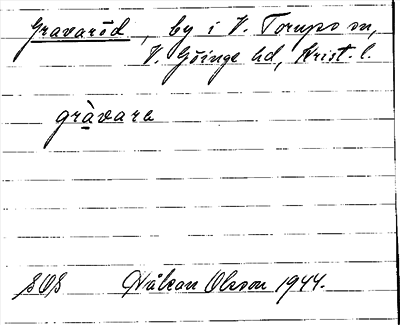 Gravaröd, by i V. Torups sn,
V. Göinge hd, Krist. l.
gràvarə
SOS Håkan Olsson 1944.